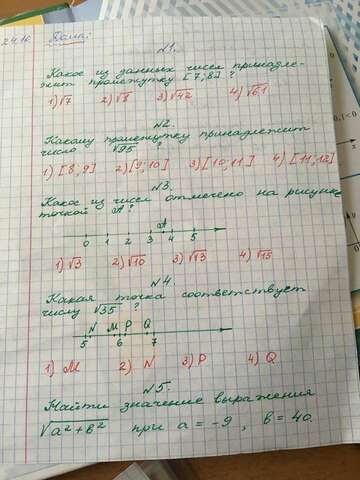 24.10 Дома:
№1.
Какое из данных чисел принадле-
жит промежутку [7;8]?
1)√7 2)√8 3)√42 4)√61
№2.
Какому промежутку принадлежит
число √95 ?
1) [8,9] 2) [9;10] 3) [10;11] 4) [11;12]
№3.
Какое из чисел отмечено на рисунке
точкой А?
А
0 1 2 3 4 5
1)√3 2)√10 3)√13 4)√15
№4.
Какая точка соответствует
числу √35 ?
N M P Q
5 6 7
1) M 2) N 3) P 4) Q
№5.
Найти значение выражения
√a²+b² при a = -9, b = 40.